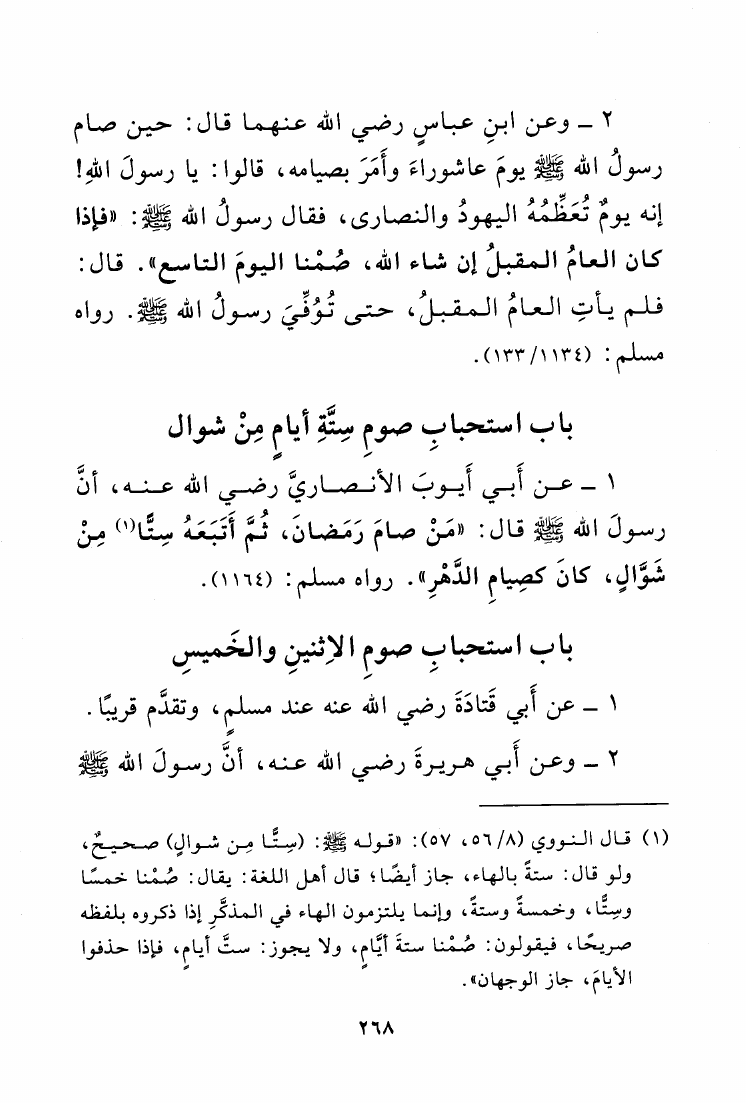 ٢ ــ وعن ابنِ عباسٍ رضي الله عنهما قال: حين صام
رسولُ الله ﷺ يومَ عاشوراءَ وأَمَرَ بصيامه، قالوا: يا رسولَ اللهِ!
إنه يومٌ تُعَظِّمُهُ اليهودُ والنصارى، فقال رسولُ الله ﷺ: «فإذا
كان العامُ المقبلُ إن شاء الله، صُمْنا اليومَ التاسع». قال:
فلم يأتِ العامُ المقبلُ، حتى تُوُفِّيَ رسولُ الله ﷺ. رواه
مسلم: (١٣٣/١١٣٤).
باب استحبابِ صومِ سِتَّةِ أيامٍ مِنْ شوال
١ ــ عن أَبي أَيوبَ الأنصاريَّ رضي الله عنه، أنَّ
رسولَ الله ﷺ قال: «مَنْ صامَ رَمَضانَ، ثُمَّ أَتَبَعَهُ سِتًّا(١) مِنْ
شَوَّالٍ، كانَ كصِيامِ الدَّهْرِ». رواه مسلم: (١١٦٤).
باب استحبابِ صومِ الاِثنينِ والخَميسِ
١ ــ عن أَبي قَتادَةَ رضي الله عنه عند مسلمٍ، وتقدَّم قريبًا.
٢ ــ وعن أَبي هريرةَ رضي الله عنه، أنَّ رسولَ الله ﷺ
(١) قال النووي (٥٦/٨، ٥٧): «قوله ﷺ: (سِتًّا مِن شوالٍ) صحيحٌ،
ولو قال: ستةً بالهاء، جاز أيضًا؛ قال أهل اللغة: يقال: صُمْنا خمسًا
وسِتًّا، وخمسةً وستةً، وإنما يلتزمون الهاء في المذكَّرِ إذا ذكروه بلفظه
صريحًا، فيقولون: صُمْنا ستةَ أيَّامٍ، ولا يجوز: ستَّ أيامٍ، فإذا حذفوا
الأيامَ، جاز الوجهان».
٢٦٨